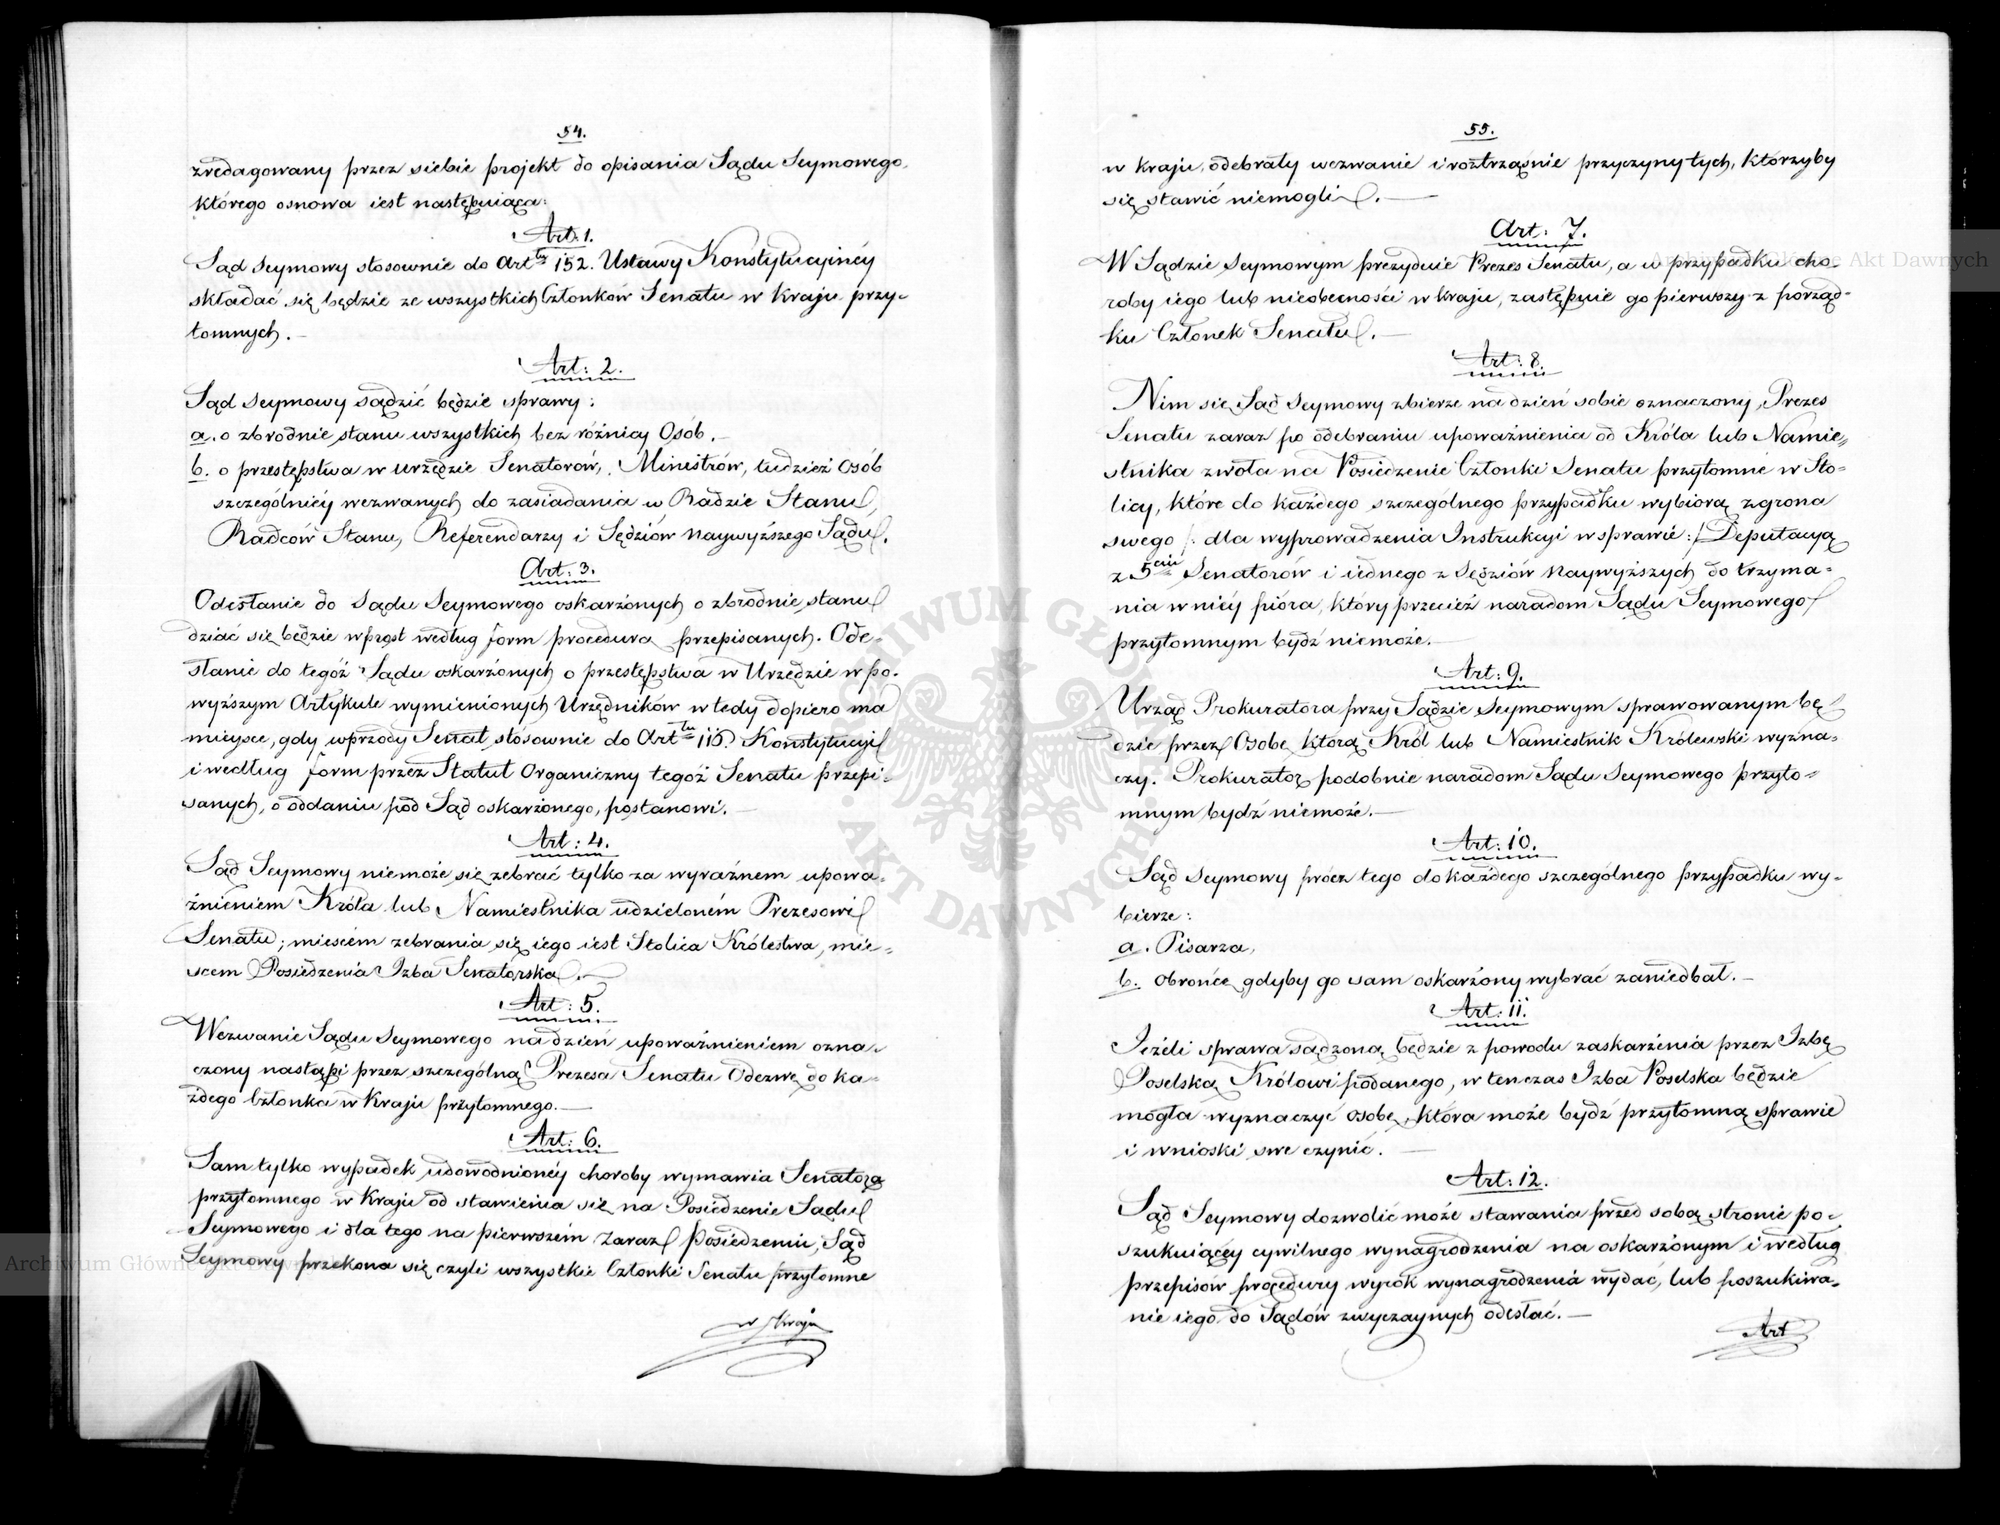 54.
zredagowany przez siebie projekt do opisania Sądu Seymowego,
którego osnowa iest następuiąca:
Art: 1.
Sąd Seymowy stosownie do Art^łu 152. Ustawy Konstytucyinéy
składać się będzie ze wszystkich Członków Senatu w kraju przy-
tomnych. —
Art: 2.
Sąd Seymowy sądzić będzie sprawy:
a. o zbrodnie stanu wszystkich bez różnicy Osób. —
b. o przestępstwa w urzędzie Senatorów, Ministrów, tudzież Osób
szczególniéy wezwanych do zasiadania w Radzie Stanu,
Radców Stanu, Referendarzy i Sędziów naywyższego Sądu.
Art: 3.
Odesłanie do Sądu Seymowego oskarżonych o zbrodnie stanu
dziać się będzie wprost według form procedurą przepisanych. Ode-
słanie do tegóż Sądu oskarżonych o przestępstwa w Urzędzie w po-
wyższym Artykule wymienionych Urzędników wtedy dopiero ma
mieysce, gdy wprzódy Senat stosownie do Art^łu 116. Konstytucyi
i według form przez Statut Organiczny tegóż Senatu przepi-
sanych, o oddaniu pod Sąd oskarżonego, postanowi. —
Art: 4.
Sąd Seymowy niemoże się zebrać tylko za wyraźnem upowa-
żnieniem Króla lub Namiestnika udzieloném Prezesowi
Senatu; mieścem zebrania się iego iest Stolica Królestwa, mie-
scem Posiedzenia Izba Senatorska. —
Art: 5.
Wezwanie Sądu Seymowego na dzień upoważnieniem ozna-
czony nastąpi przez szczególną Prezesa Senatu Odezwę do ka-
żdego Członka w Kraju przytomnego. —
Art: 6.
Sam tylko wypadek udowodnionéy choroby wymawia Senatora
przytomnego w Kraju od stawienia się na Posiedzenie Sądu
Seymowego i dla tego na pierwszém zaraz Posiedzeniu, Sąd
Seymowy przekona się czyli wszystkie Członki Senatu przytomne
w Kraju
55.
w kraju, odebrały wezwanie i roztrząśnie przyczyny tych, którzyby
się stawić niemogli. —
Art: 7.
W Sądzie Seymowym prezyduie Prezes Senatu, a w przypadku cho-
roby iego lub nieobecności w kraju, zastępuie go pierwszy z porząd-
ku Członek Senatu. —
Art: 8.
Nim się Sąd Seymowy zbierze na dzień sobie oznaczony, Prezes
Senatu zaraz po odebraniu upoważnienia od Króla lub Namie-
stnika zwoła na Posiedzenie Członki Senatu przytomne w Sto-
licy, które do każdego szczególnego przypadku wybiorą z grona
swego /: dla wyprowadzenia Instrukcyi w sprawie :/ Deputacyą
z 5^ciu Senatorów i iednego z Sędziów Naywyższych do trzyma-
nia w niéy pióra, który przecież naradom Sądu Seymowego
przytomnym bydź niemoże. —
Art: 9.
Urząd Prokuratora przy Sądzie Seymowym sprawowanym bę-
dzie przez Osobę którą Król lub Namiestnik Królewski wyzna-
czy. Prokurator podobnie naradom Sądu Seymowego przyto-
mnym bydź niemoże. —
Art: 10.
Sąd Seymowy prócz tego do każdego szczególnego przypadku wy-
bierze:
a. Pisarza,
b. Obrońcę gdyby go sam oskarżony wybrać zaniedbał. —
Art: 11.
Jeżeli sprawa sądzoną będzie z powodu zaskarżenia przez Izbę
Poselską Królowi podanego, w tenczas Izba Poselska będzie
mogła wyznaczyć osobę, która może bydź przytomną sprawie
i wnioski swe czynić. —
Art: 12.
Sąd Seymowy dozwolić może stawania przed sobą stronie po-
szukuiącéy cywilnego wynagrodzenia na oskarżonym i według
przepisów procedury wyrok wynagrodzenia wydać, lub poszukiwa-
nie iego do Sądów zwyczaynych odesłać. —
Art